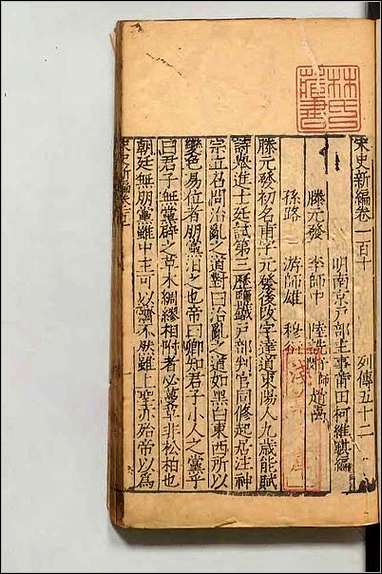 宋史新編卷一百十　列傳五十二
明南京戶部主事莆田柯維騏編
滕元發　李師中　陸詵　子師閔　趙卨
孫路　游師雄　穆衍
滕元發初名甫字元發後改字達道東陽人九歲能賦
詩舉進士廷試第三歷鹽鐵戶部判官同修起居注神
宗立召問治亂之道對曰治亂之道如黑白東西所以
變色易位者朋黨汩之也帝曰卿知君子小人之黨乎
曰君子無黨辟之草木綢繆相附者必蔓草非松柏也
朝廷無朋黨雖中主可以濟不然雖上聖亦殆帝以爲
林氏藏書